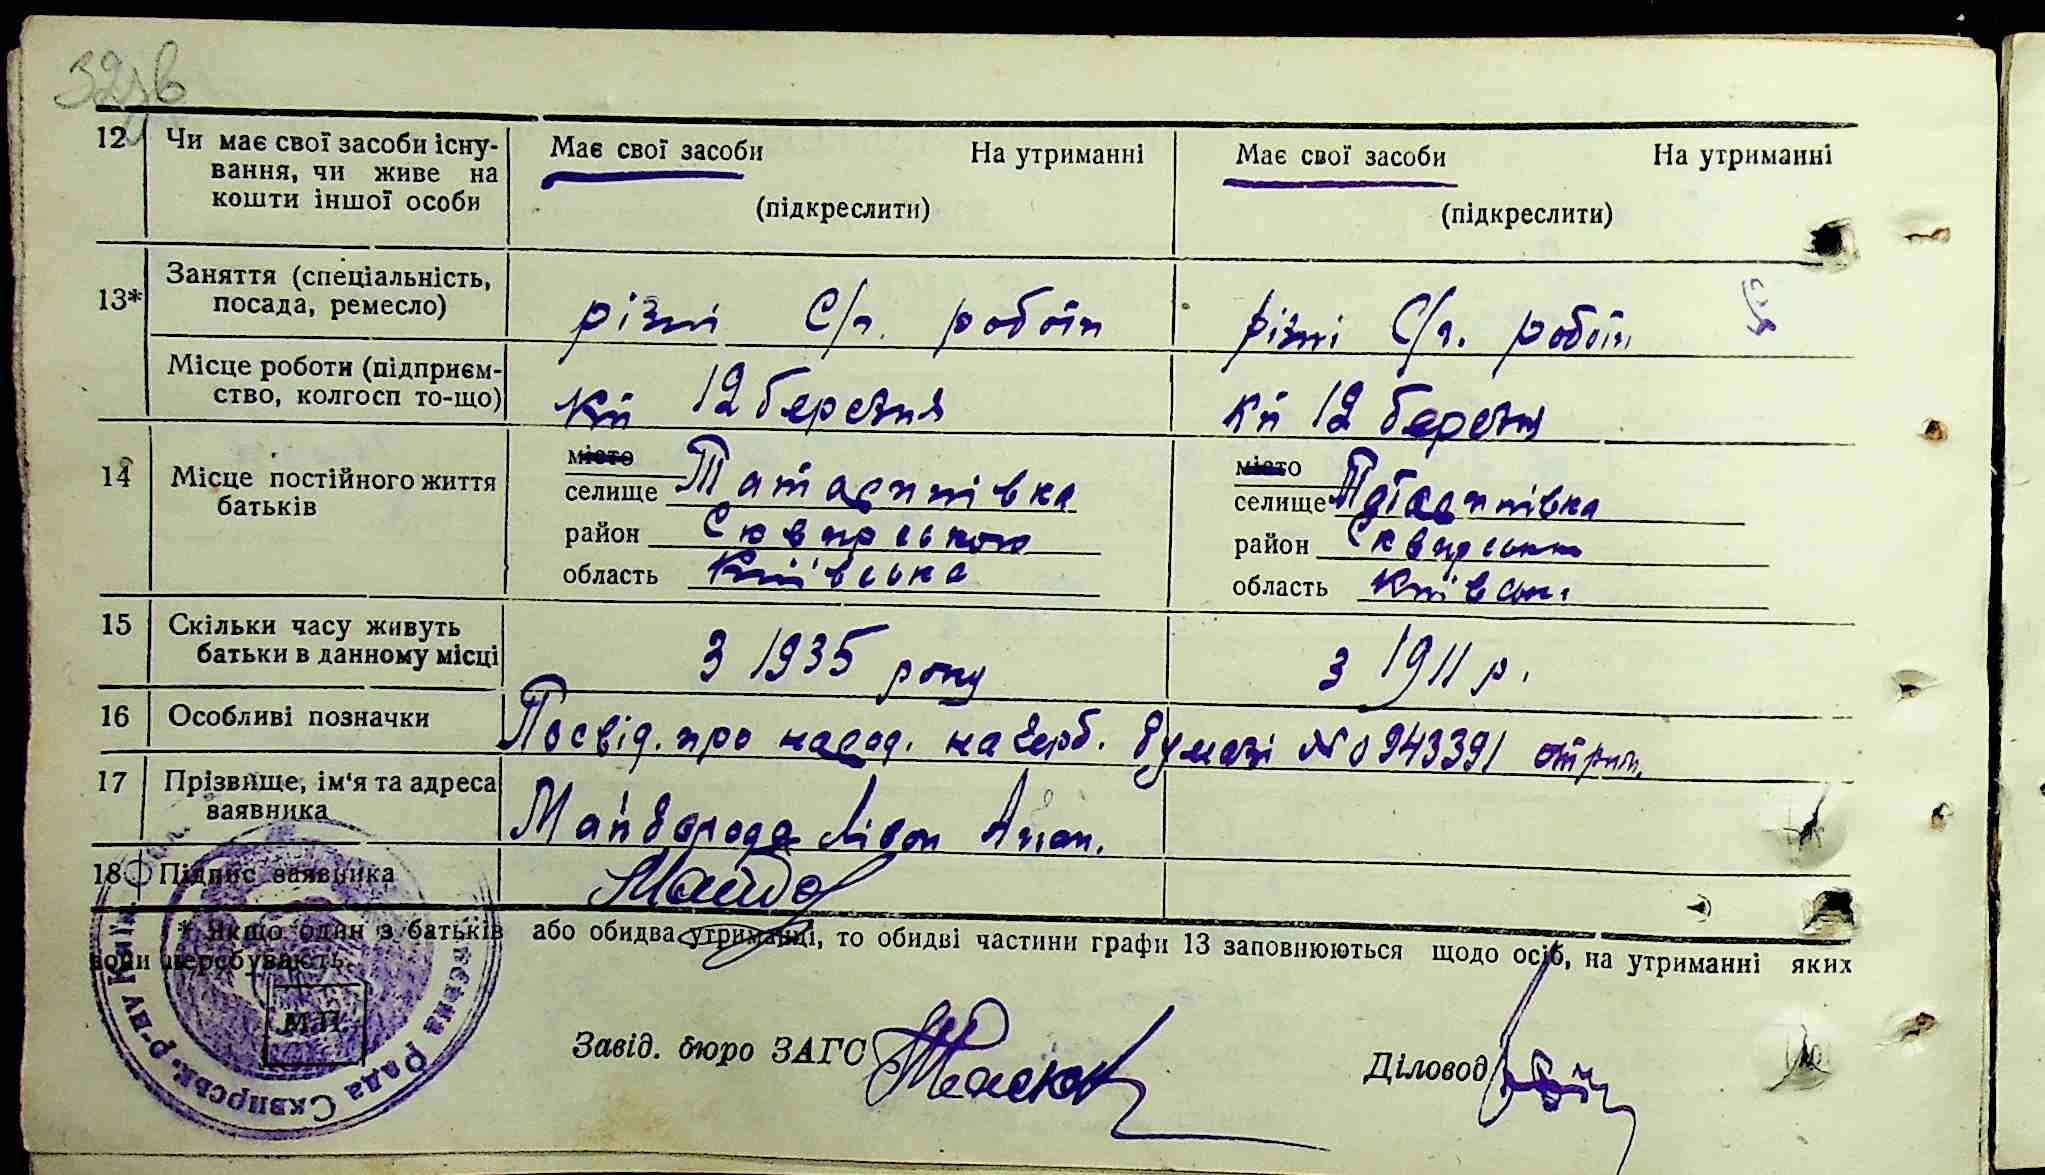 32зв
12 Чи має свої засоби існу-
вання, чи живе на
кошти іншої особи
Має свої засоби На утриманні
(підкреслити)
Має свої засоби На утриманні
(підкреслити)
13* Заняття (спеціальність,
посада, ремесло)
різні С/г. роботи
різні С/г. роботи
Місце роботи (підприєм-
ство, колгосп то-що)
к-п 12 березня
к-п 12 березня
14 Місце постійного життя
батьків
місто
селище Татаринівка
район Сквирського
область Київська
місто
селище Татаринівка
район
область Київськ.
15 Скільки часу живуть
батьки в данному місці
З 1935 року
з 1911 р.
16 Особливі позначки
Посвід. про народ. на герб. бумазі № 0943391 отрим.
17 Прізвище, ім'я та адреса
заявника
Майборода Лівон Антон.
18 Підпис заявника
Майбо
* Якщо один з батьків або обидва утриманці, то обидві частини графи 13 заповнюються щодо осіб, на утриманні яких
вони перебувають.
М.П.
Рада Сквирськ. р-ну Київ
Завід. бюро ЗАГС
Діловод